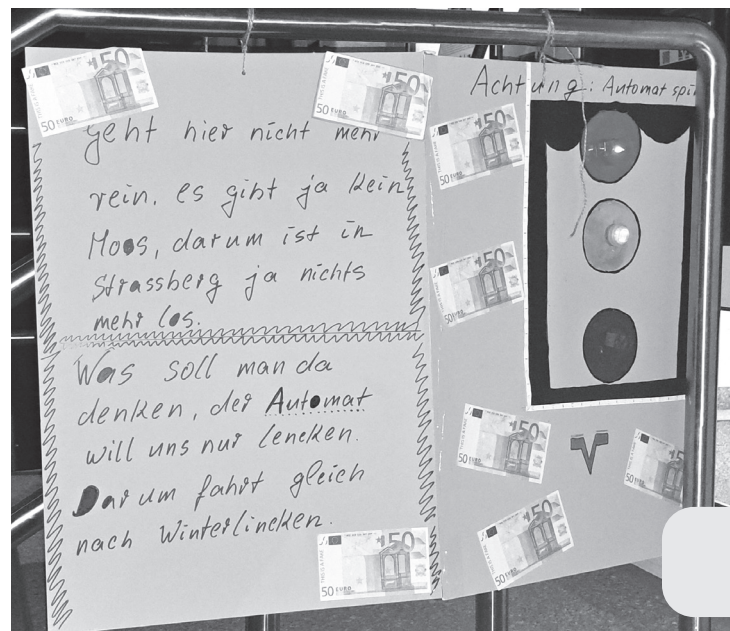 geht hier nicht mehr
rein, es gibt ja kein
Moos, darum ist in
Strassberg ja nichts
mehr los.
Was soll man da
denken, der Automat
will uns nur lencken.
Darum fahrt gleich
nach Winterlincken.
Achtung: Automat
50
50 EURO
50
50 EURO
50
50 EURO
50
50 EURO
50
50 EURO
50
50 EURO
50
50 EURO
50